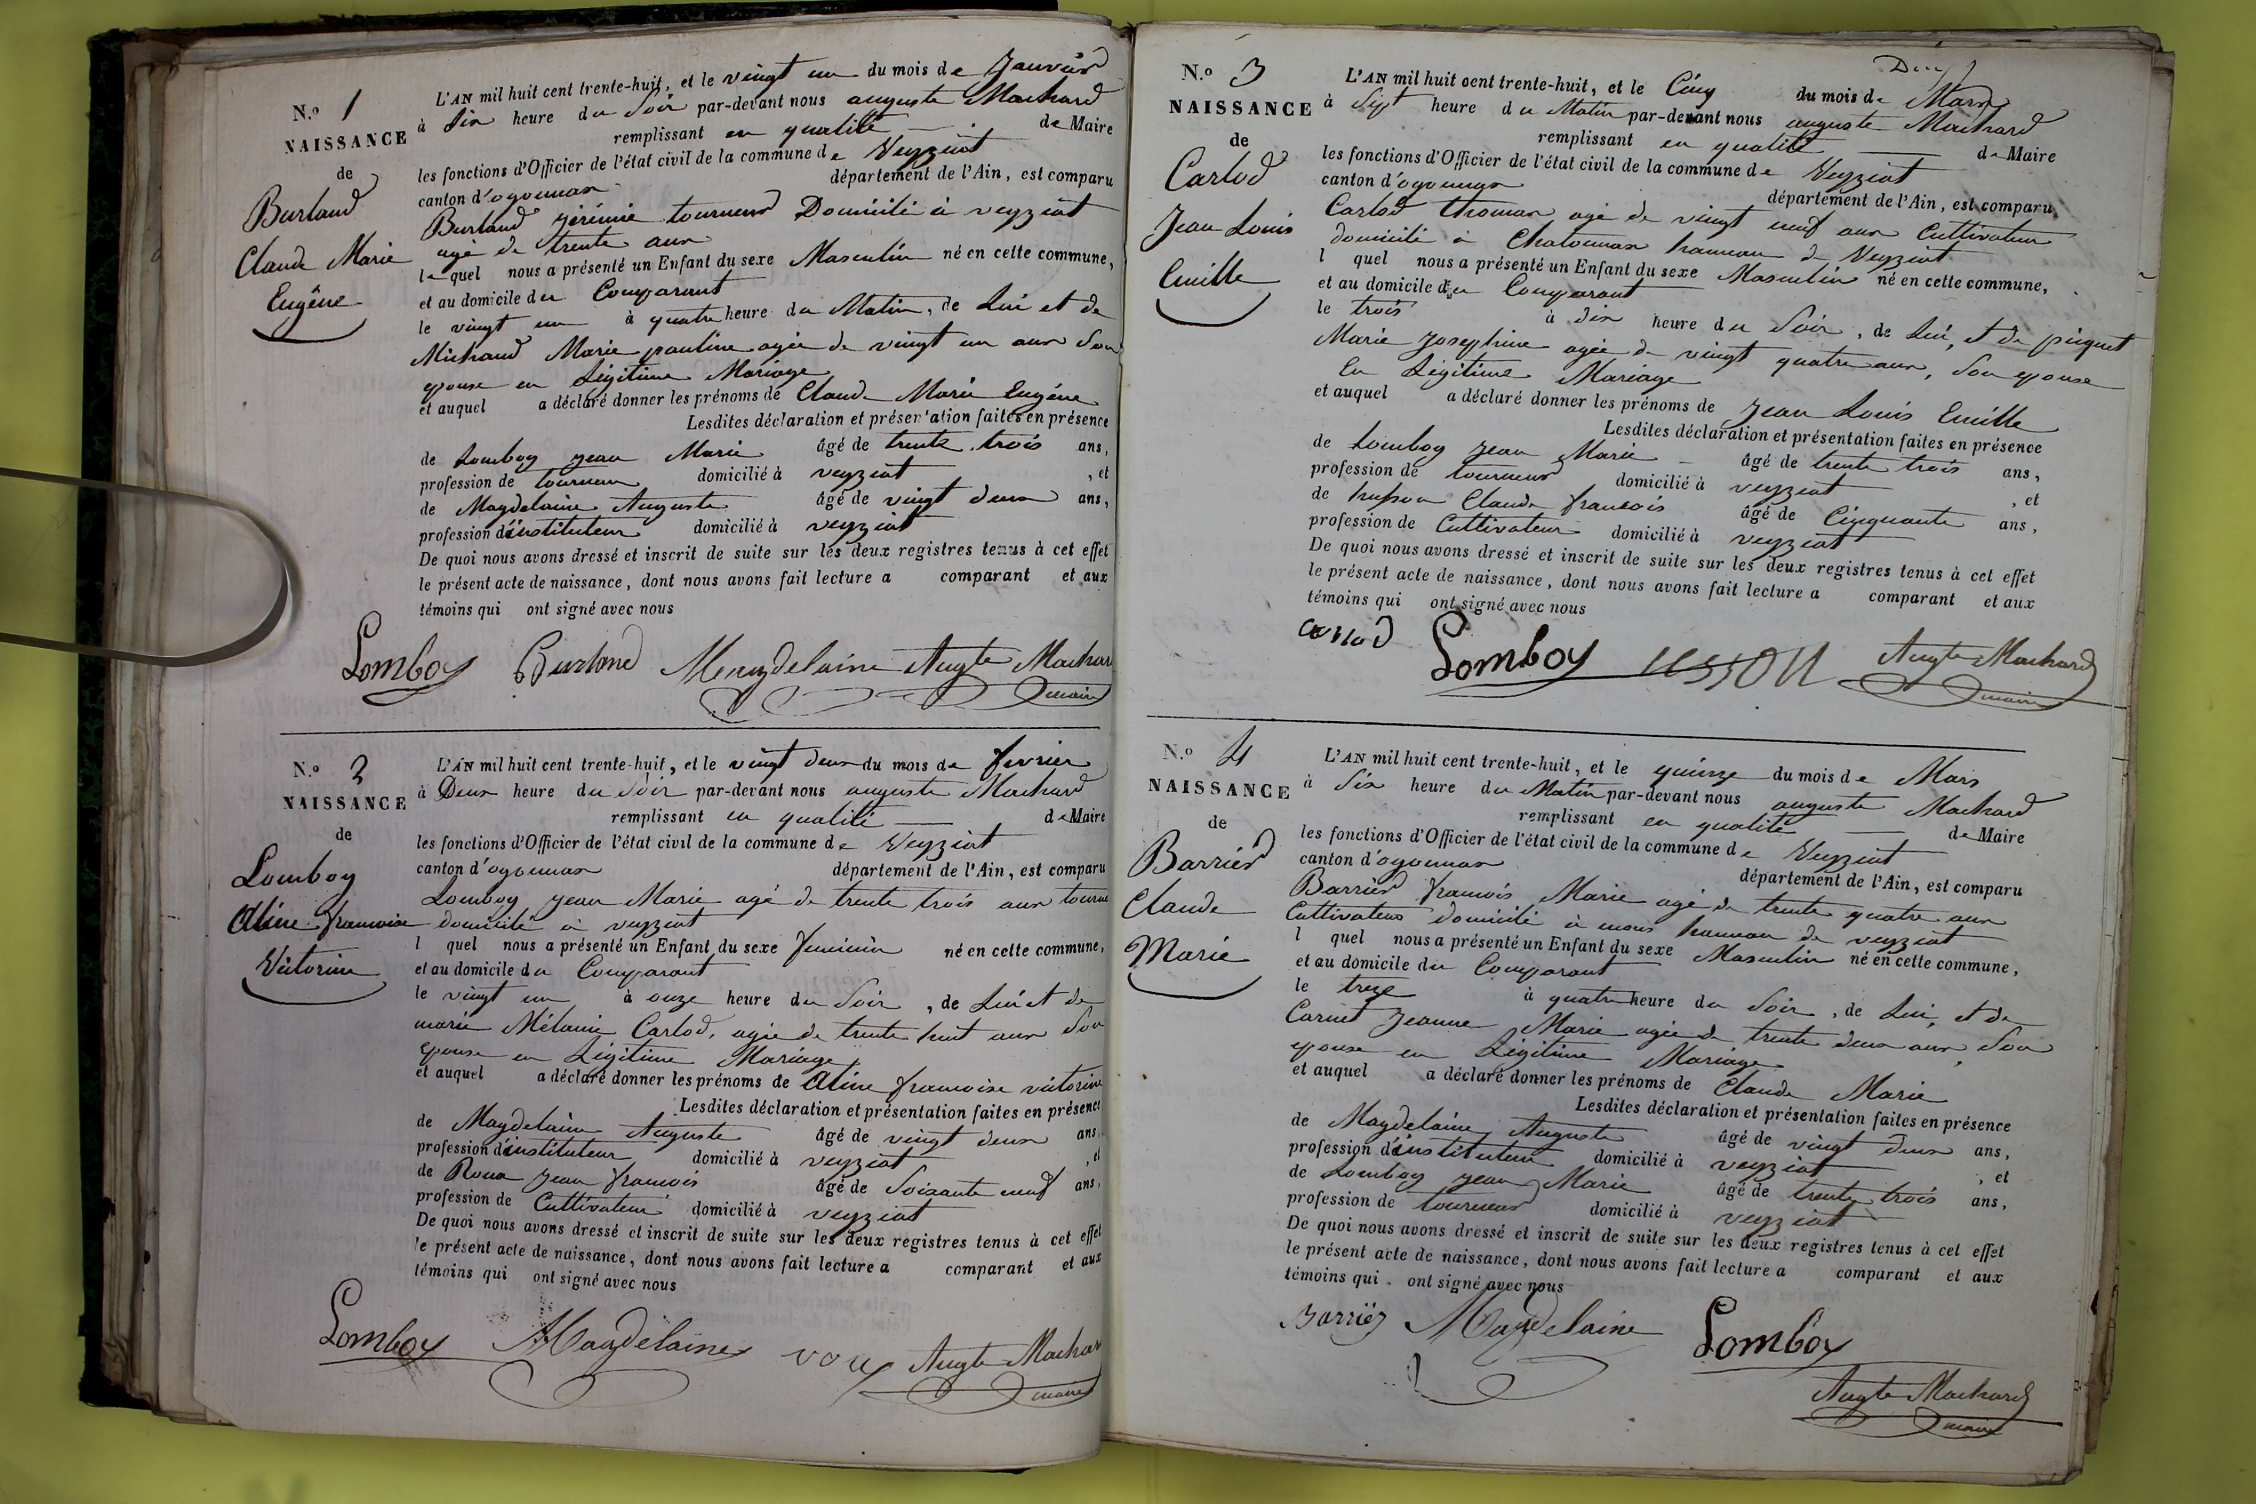 N.o 1
NAISSANCE
de
Burlaud
Claude Marie
Eugêne
L'AN mil huit cent trente-huit, et le vingt un du mois de Janvier
à Six heure du Soir par-devant nous auguste Machard
remplissant en qualité de Maire
les fonctions d'Officier de l'état civil de la commune de Veyziat
canton d'oyonnax département de l'Ain, est comparu
Burlaud jérémie tourneur Domicilié à veyziat
agé de trente ans
lequel nous a présenté un Enfant du sexe Masculin né en cette commune,
et au domicile du Comparant
le vingt un à quatre heure du Matin, de Lui et de
Michaud Marie pauline agée de vingt un ans Son
epouse en Légitime Mariage
et auquel a déclaré donner les prénoms de Claude Marie Eugéne
Lesdites déclaration et présentation faites en présence
de Lomboy jean Marie âgé de trente trois ans,
profession de tourneur domicilié à veyziat, et
de Magdelaine Auguste âgé de vingt deux ans,
profession d'instituteur domicilié à veyziat
De quoi nous avons dressé et inscrit de suite sur les deux registres tenus à cet effet
le présent acte de naissance, dont nous avons fait lecture a comparant et aux
témoins qui ont signé avec nous
Lomboy Burland Magdelaine Augte Machar
maire
N.o 2
NAISSANCE
de
Lomboy
Aline francoise
Victorine
L'AN mil huit cent trente-huit, et le vingt deux du mois de fevrier
à Deux heure du Soir par-devant nous auguste Machard
remplissant en qualité de Maire
les fonctions d'Officier de l'état civil de la commune de Veyziat
canton d'oyonnax département de l'Ain, est comparu
Lomboy jean Marie agé de trente trois ans tourneur
domicilié à veyziat
l quel nous a présenté un Enfant du sexe feminin né en cette commune,
et au domicile du Comparant
le vingt un à onze heure du Soir, de Lui et de
marie Mélanie Carlod, agée de trente huit ans Son
epouse en Légitime Mariage
et auquel a déclaré donner les prénoms de Aline francoise victorine
Lesdites déclaration et présentation faites en présence
de Magdelaine Auguste âgé de vingt deux ans,
profession d'instituteur domicilié à veyziat, et
de Roux Jean francois âgé de Soixante neuf ans,
profession de Cultivateur domicilié à veyziat
De quoi nous avons dressé et inscrit de suite sur les deux registres tenus à cet effet
le présent acte de naissance, dont nous avons fait lecture a comparant et aux
témoins qui ont signé avec nous
Lomboy Magdelaine Augte Machar
maire
N.o 3
NAISSANCE
de
Carlod
Jean Louis
Emille
L'AN mil huit cent trente-huit, et le Cinq du mois de Mars
à Sept heure du Matin par-devant nous auguste Machard
remplissant en qualité de Maire
les fonctions d'Officier de l'état civil de la commune de Veyziat
canton d'oyonnax département de l'Ain, est comparu
Carlod thomas agé de vingt neuf ans Cultivateur
domicilié à Chatonnax hameau de Veyziat
l quel nous a présenté un Enfant du sexe Masculin né en cette commune,
et au domicile du Comparant
le trois à dix heure du Soir, de Lui, et de piquet
Marie Josephine agée de vingt quatre ans, Son epouse
En Légitime Mariage
et auquel a déclaré donner les prénoms de Jean Louis Emille
Lesdites déclaration et présentation faites en présence
de Lomboy Jean Marie âgé de trente trois ans,
profession de tourneur domicilié à veyziat, et
de husson Claude francois âgé de Cinquante ans,
profession de Cultivateur domicilié à veyziat
De quoi nous avons dressé et inscrit de suite sur les deux registres tenus à cet effet
le présent acte de naissance, dont nous avons fait lecture a comparant et aux
témoins qui ont signé avec nous
Lomboy usson Augte Machard
maire
N.o 4
NAISSANCE
de
Barrier
Claude
Marie
L'AN mil huit cent trente-huit, et le quinze du mois de Mars
à Six heure du Matin par-devant nous auguste Machard
remplissant en qualité de Maire
les fonctions d'Officier de l'état civil de la commune de Veyziat
canton d'oyonnax département de l'Ain, est comparu
Barrier francois Marie agé de trente quatre ans
Cultivateur domicilié à mons hameau de veyziat
l quel nous a présenté un Enfant du sexe Masculin né en cette commune,
et au domicile du Comparant
le treze à quatre heure du Soir, de Lui, et de
Carnet Jeanne Marie agée de trente deux ans, Son
epouse en Légitime Mariage
et auquel a déclaré donner les prénoms de Claude Marie
Lesdites déclaration et présentation faites en présence
de Magdelaine Auguste âgé de vingt deux ans,
profession d'instituteur domicilié à veyziat, et
de Lomboy jean Marie âgé de trente trois ans,
profession de tourneur domicilié à veyziat
De quoi nous avons dressé et inscrit de suite sur les deux registres tenus à cet effet
le présent acte de naissance, dont nous avons fait lecture a comparant et aux
témoins qui ont signé avec nous
Barrier Magdelaine Lomboy
Augte Machard
maire